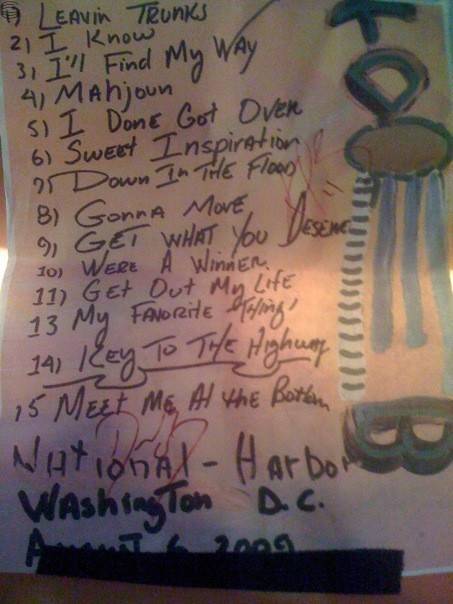 1) LEAVIN TRUNKS
2) I Know
3) I'll Find My WAY
4) MAhjoun
5) I Done Got Over
6) Sweet Inspiration
7) Down In THE Flood
8) Gonna Move
9) GET WHAT YOU DESERVE
10) WERE A WINNER
11) GEt Out My LIFE
13 My FAVORITE 'thing'
14) KEY To THE Highway
15 MEEt ME At the Bottom
NAtional - HARbor
WAshington D.C.
August 6 2009
TD
B